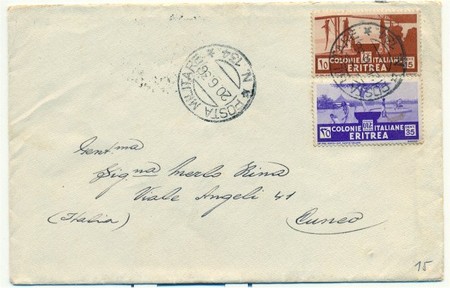 POSTA MILITARE
N. 134
20.6.36
10 COLONIE ITALIANE 35
ERITREA
10 COLONIE ITALIANE 35
ERITREA
Gent.ma
Sig.na Merlo Rina
Viale Angeli 41
(Italia)
Cuneo
15